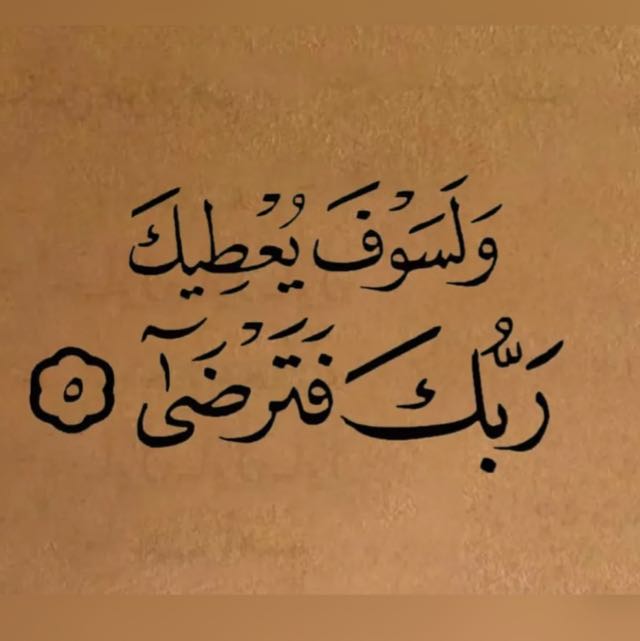 وَلَسَوْفَ يُعْطِيكَ
رَبُّكَ فَتَرْضَىٰٓ ٥